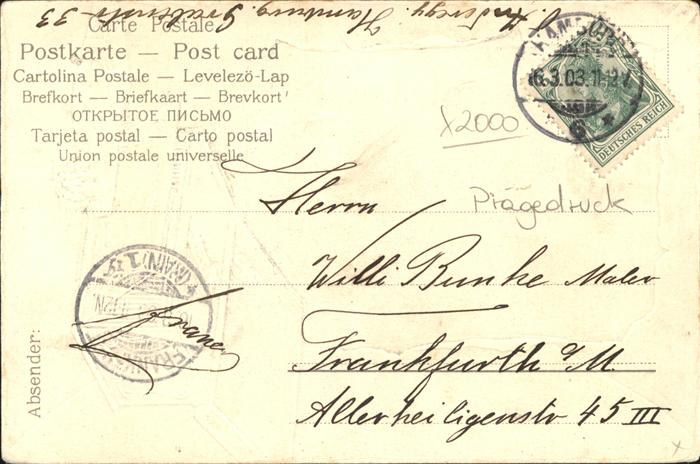 Hamburg, 33
Carte Postale
Postkarte — Post card
Cartolina Postale — Levelezö-Lap
Brefkort — Briefkaart — Brevkort
ОТКРЫТОЕ ПИСЬМО
Tarjeta postal — Carto postal
Union postale universelle
HAMBURG
16.3.03.11-12V.
6
DEUTSCHES REICH
x2000
Prägedruck
Herrn
Willi Bunke Maler
Frankfurth a/M.
Allerheiligenstr 45 III
(MAIN) 1
Absender:
x